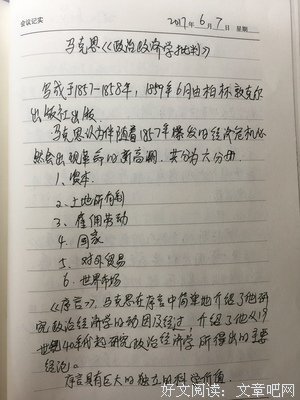 会议记实 2017年6月7日 星期
马克思《《政治经济学批判》
写成于1857-1858年，1859年6月由柏林敦克尔
出版社出版.
马克思认为伴随着1857年爆发的经济危机必
然会出现革命的新高潮. 共分为六分册
1、资本
2、土地所有制
3、雇佣劳动
4、国家
5、对外贸易
6、世界市场
《序言》. 马克思在序言中简单地介绍了他研
究政治经济学的动因及经过，介绍了他从19
世纪40年代起研究政治经济学所得出的主要
结论。
序言具有巨大的独立的科学价值.
好文阅读：文章吧网